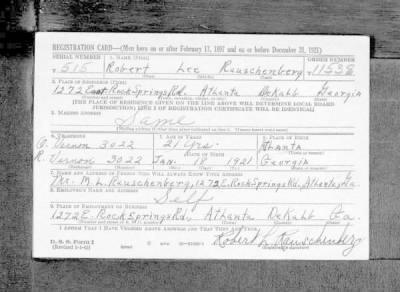 REGISTRATION CARD—(Men born on or after February 17, 1897 and on or before December 31, 1921)
SERIAL NUMBER 1. NAME (Print) ORDER NUMBER
515 Robert Lee Rauschenberg 11538
(First) (Middle) (Last)
2. PLACE OF RESIDENCE (Print)
1272 East Rock Springs Rd. Atlanta DeKalb Georgia
[THE PLACE OF RESIDENCE GIVEN ON THE LINE ABOVE WILL DETERMINE LOCAL BOARD
JURISDICTION; LINE 2 OF REGISTRATION CERTIFICATE WILL BE IDENTICAL]
3. MAILING ADDRESS
Same
4. TELEPHONE 5. AGE IN YEARS 6. PLACE OF BIRTH
O. Vernon 3022 21 Yrs. Atlanta
DATE OF BIRTH
R. Vernon 3022 Jan. 18 1921 Georgia
7. NAME AND ADDRESS OF PERSON WHO WILL ALWAYS KNOW YOUR ADDRESS
Mr. M. L. Rauschenberg, 1272 E. Rock Springs Rd, Atlanta, Ga
8. EMPLOYER'S NAME AND ADDRESS
Self
9. PLACE OF EMPLOYMENT OR BUSINESS
1272 E. Rock Springs Rd, Atlanta DeKalb Ga.
I AFFIRM THAT I HAVE VERIFIED ABOVE ANSWERS AND THAT THEY ARE TRUE.
D. S. S. Form 1
Robert L. Rauschenberg